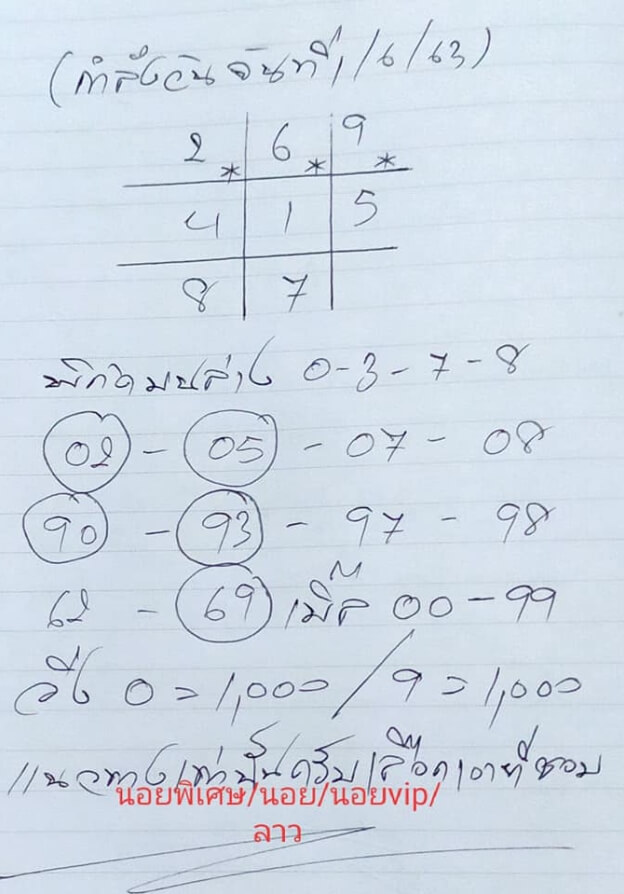 (กำลังวันจันทร์ 1/6/63)
2 * 6 * 9 *
4 1 5
8 7
บนล่าง 0-3-7-8
02 - 05 - 07 - 08
90 - 93 - 97 - 98
62 - 69 เบิ้ล 00 - 99
วิ่ง 0 = 1,000 / 9 = 1,000
แนวทางเท่านั้นครับเลือกเอาที่ชอบ
นอยพิเศษ/นอย/นอยvip/
ลาว